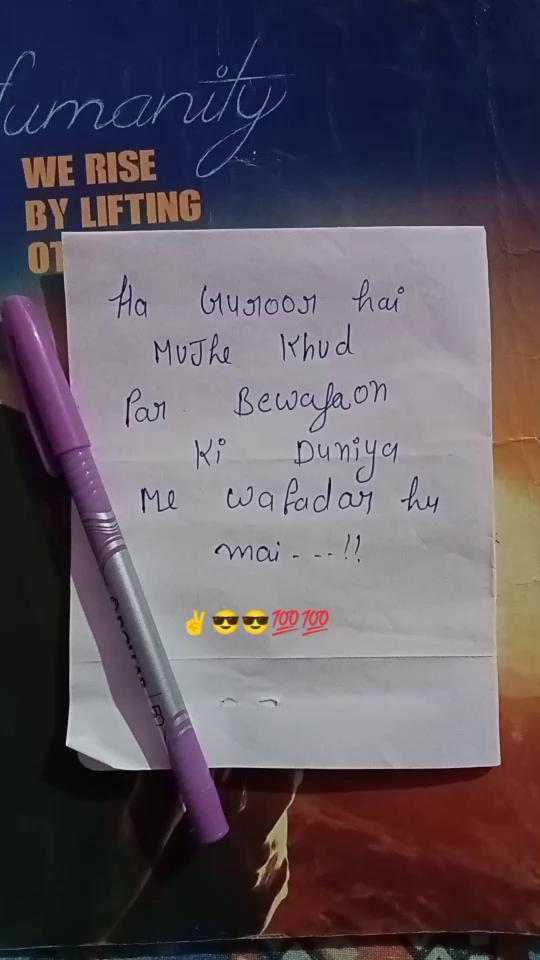 Humanity
WE RISE
BY LIFTING
OT
Ha Guroor hai
MuJhe Khud
Par Bewafaon
Ki Duniya
Me wafadar hu
mai - - - !!
✌😎😎💯💯